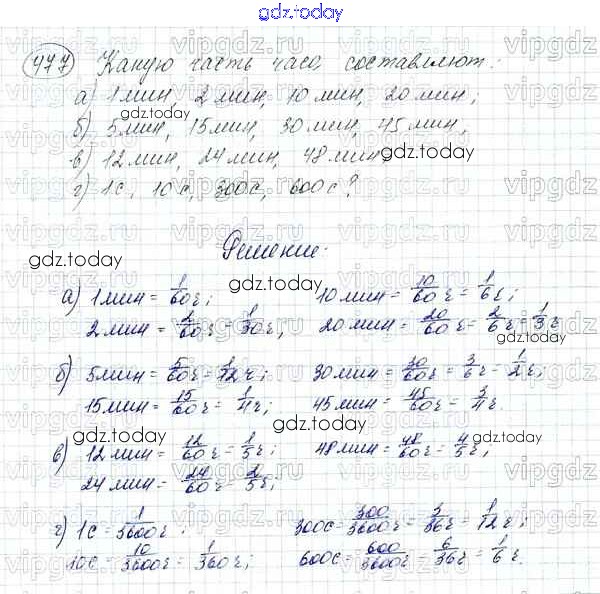 gdz.today
477 Какую часть часа составляют:
а) 1 мин, 2 мин, 10 мин, 20 мин;
б) 5 мин, 15 мин, 30 мин, 45 мин;
в) 12 мин, 24 мин, 48 мин;
г) 1с, 10с, 300с, 600с?
Решение:
а) 1 мин = 1/60 ч; 10 мин = 10/60 ч = 1/6 ч;
2 мин = 2/60 ч = 1/30 ч; 20 мин = 20/60 ч = 2/6 ч = 1/3 ч
б) 5 мин = 5/60 ч = 1/12 ч; 30 мин = 30/60 ч = 3/6 ч = 1/2 ч;
15 мин = 15/60 ч = 1/4 ч; 45 мин = 45/60 ч = 3/4 ч.
в) 12 мин = 12/60 ч = 1/5 ч; 48 мин = 48/60 ч = 4/5 ч;
24 мин = 24/60 ч = 2/5 ч;
г) 1с = 1/3600 ч; 300с = 300/3600 ч = 3/36 ч = 1/12 ч;
10с = 10/3600 ч = 1/360 ч; 600с = 600/3600 ч = 6/36 ч = 1/6 ч.